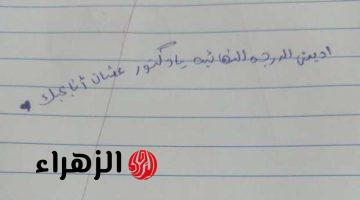 اديني الدرجه النهائيه يا دكتور عشان أنا بحبك
الزهراء